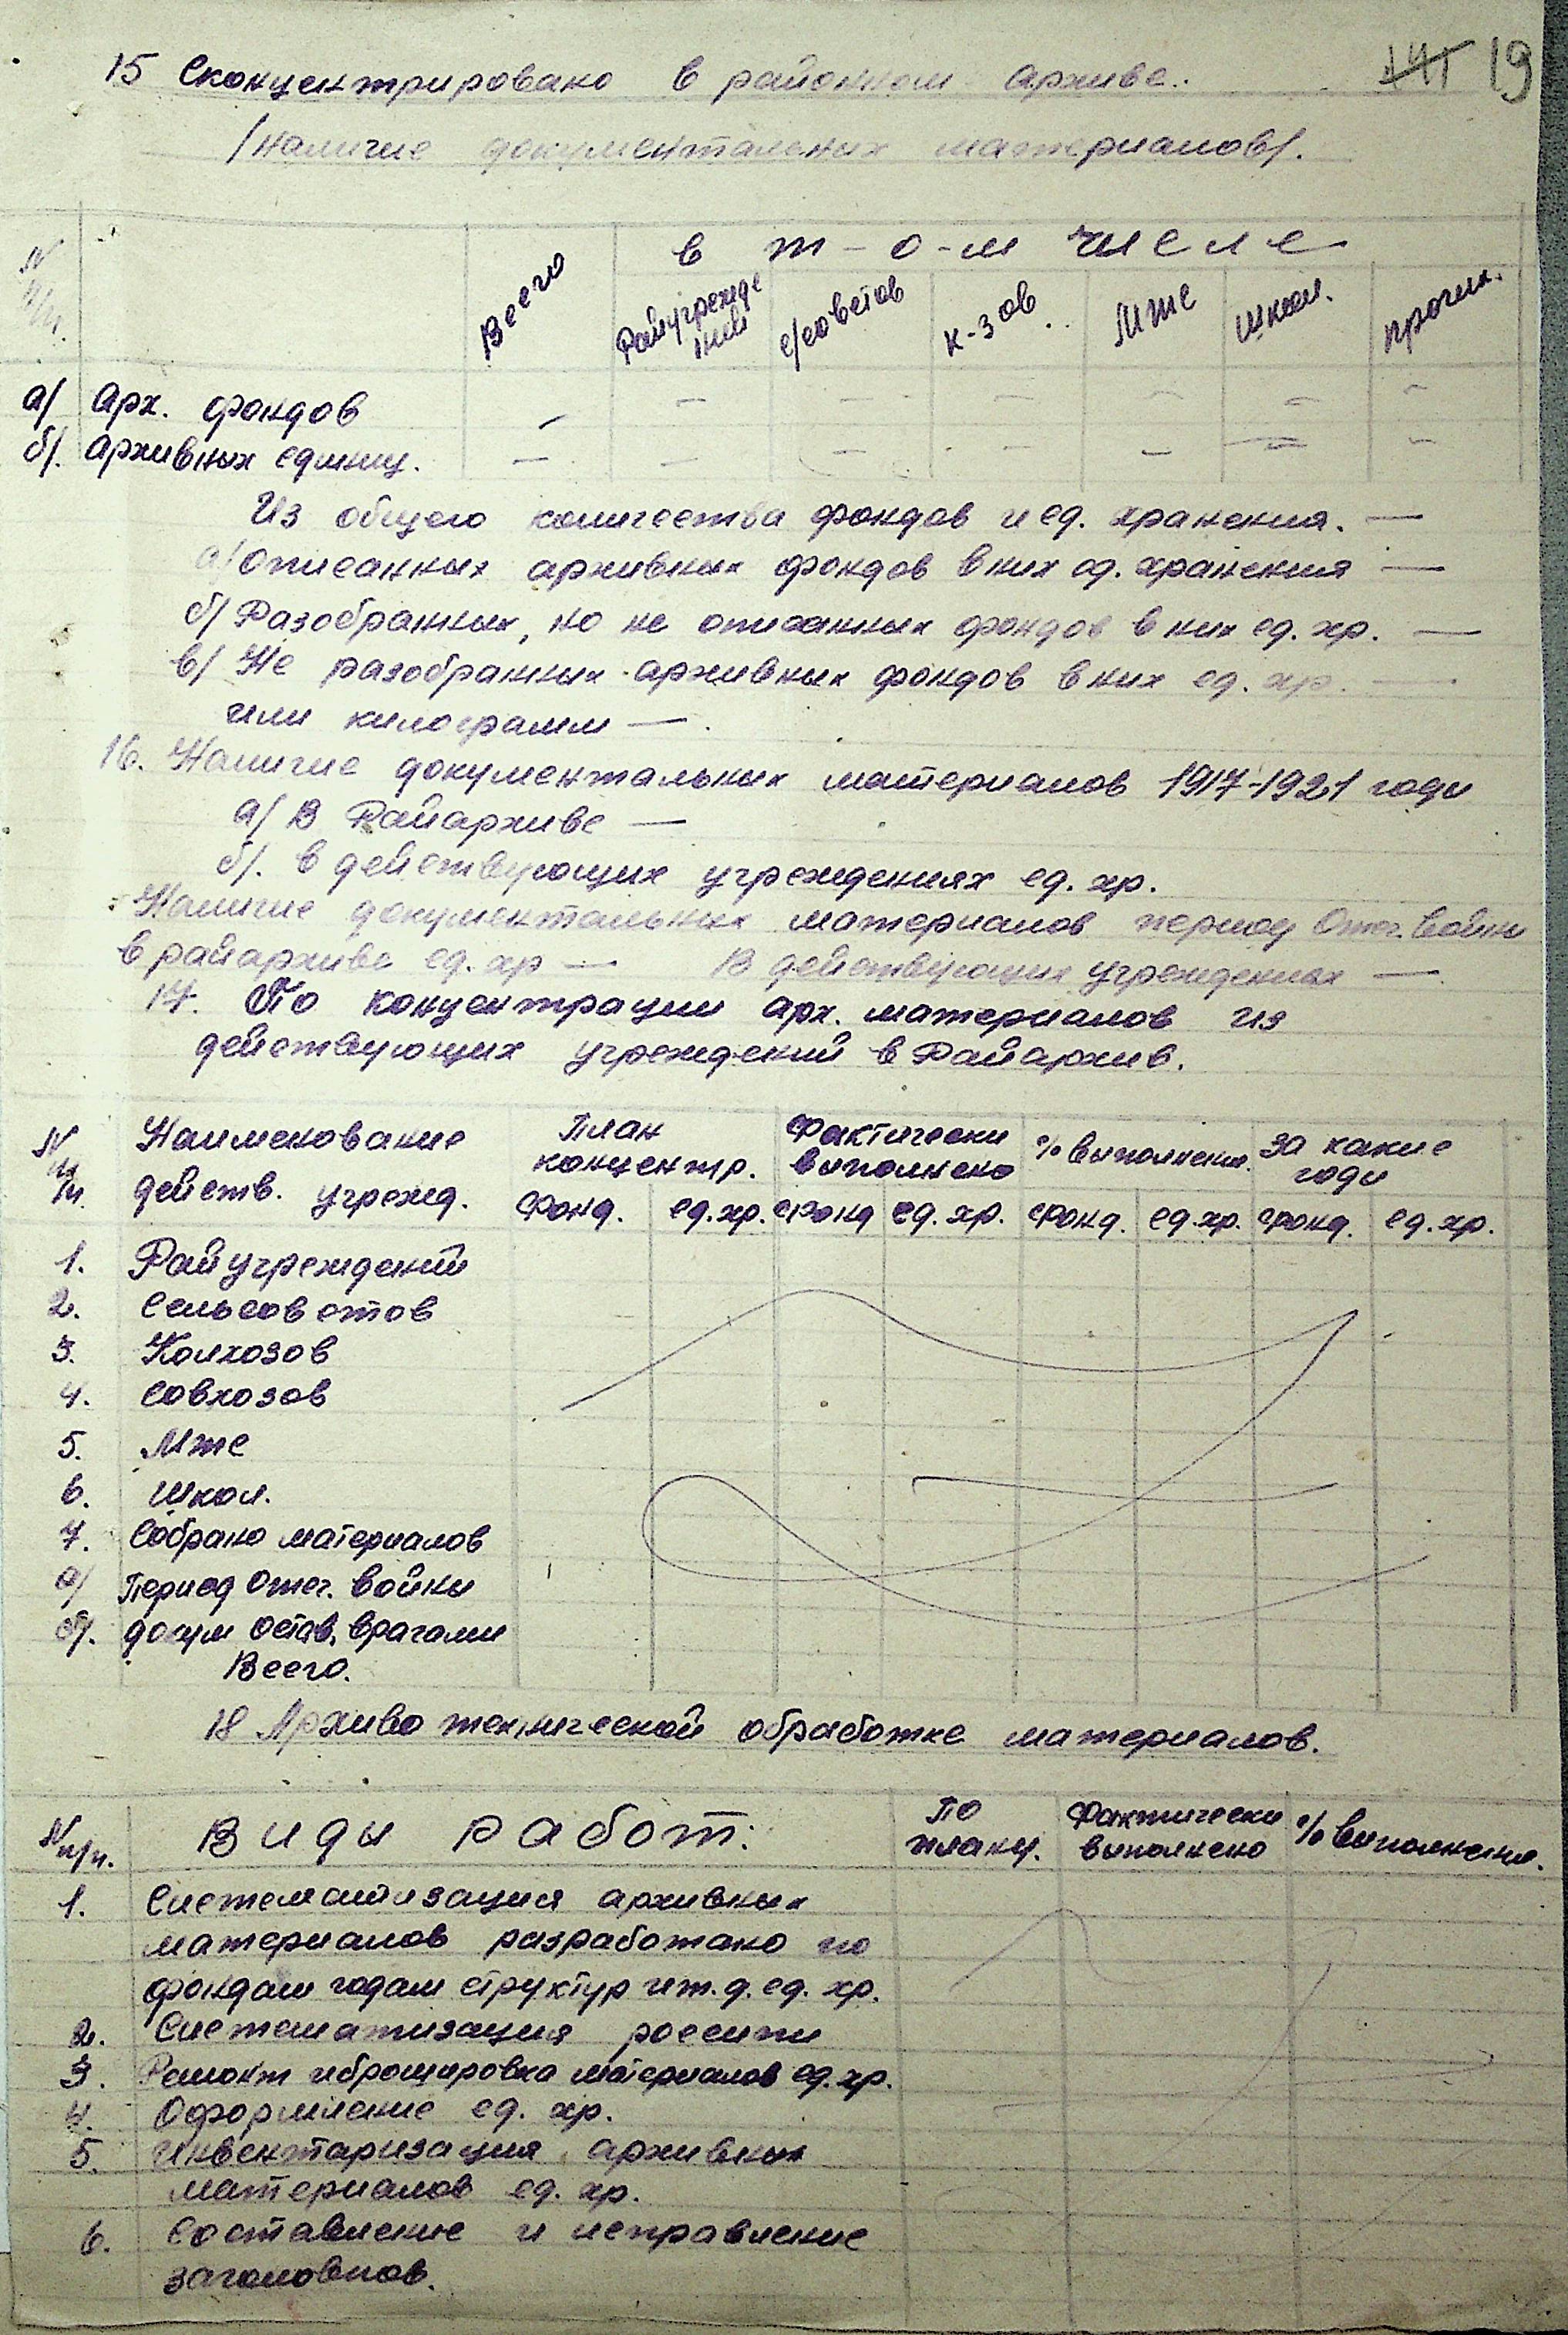 19
15 Сконцентрировано в районном архиве.
/наличие документальных материалов/.
N п/п. Всего в т-о-м числе
Райучрежде ний с/советов к-зов. Мтс школ. прочих.
а/ Арх. фондов — — — — — — —
б/. архивных единиц. — — — — — — —
Из общего количества фондов и ед. хранения. —
а/ описанных архивных фондов в них ед. хранения —
б/ Разобранных, но не описанных фондов в них ед. хр. —
в/ Не разобранных архивных фондов в них ед. хр. —
или килограмм — .
16. Наличие документальных материалов 1917-1921 годы
а/ В Райархиве —
б/. в действующих учреждениях ед. хр.
Наличие документальных материалов период Отеч. войны
в райархиве ед. хр — В действующих учреждениях —
17. По концентрации арх. материалов из
действующих учреждений в Райархив.
N п/п. Наименование План Фактически % выполнения. За какие
действ. учрежд. концентр. выполнено годы
Фонд. ед. хр. Фонд ед. хр. Фонд. ед. хр. Фонд. ед. хр.
1. Райучреждений
2. Сельсоветов
3. Колхозов
4. Совхозов
5. Мтс
6. Школ.
7. Собрано материалов
а/ Период Отеч. войны
б/. докум остав. врагами
Всего.
18 Архивотехнической обработке материалов.
N п/п. Виды работ: По Фактически % выполнения.
плану. выполнено
1. Систематизация архивных
материалов разработано по
фондам годам структур и т. д. ед. хр.
2. Систематизация россыпи
3. Ремонт и брошировка материалов ед. хр.
4. Оформление ед. хр.
5. Инвентаризация архивных
материалов ед. хр.
6. Составление и исправление
заголовков.